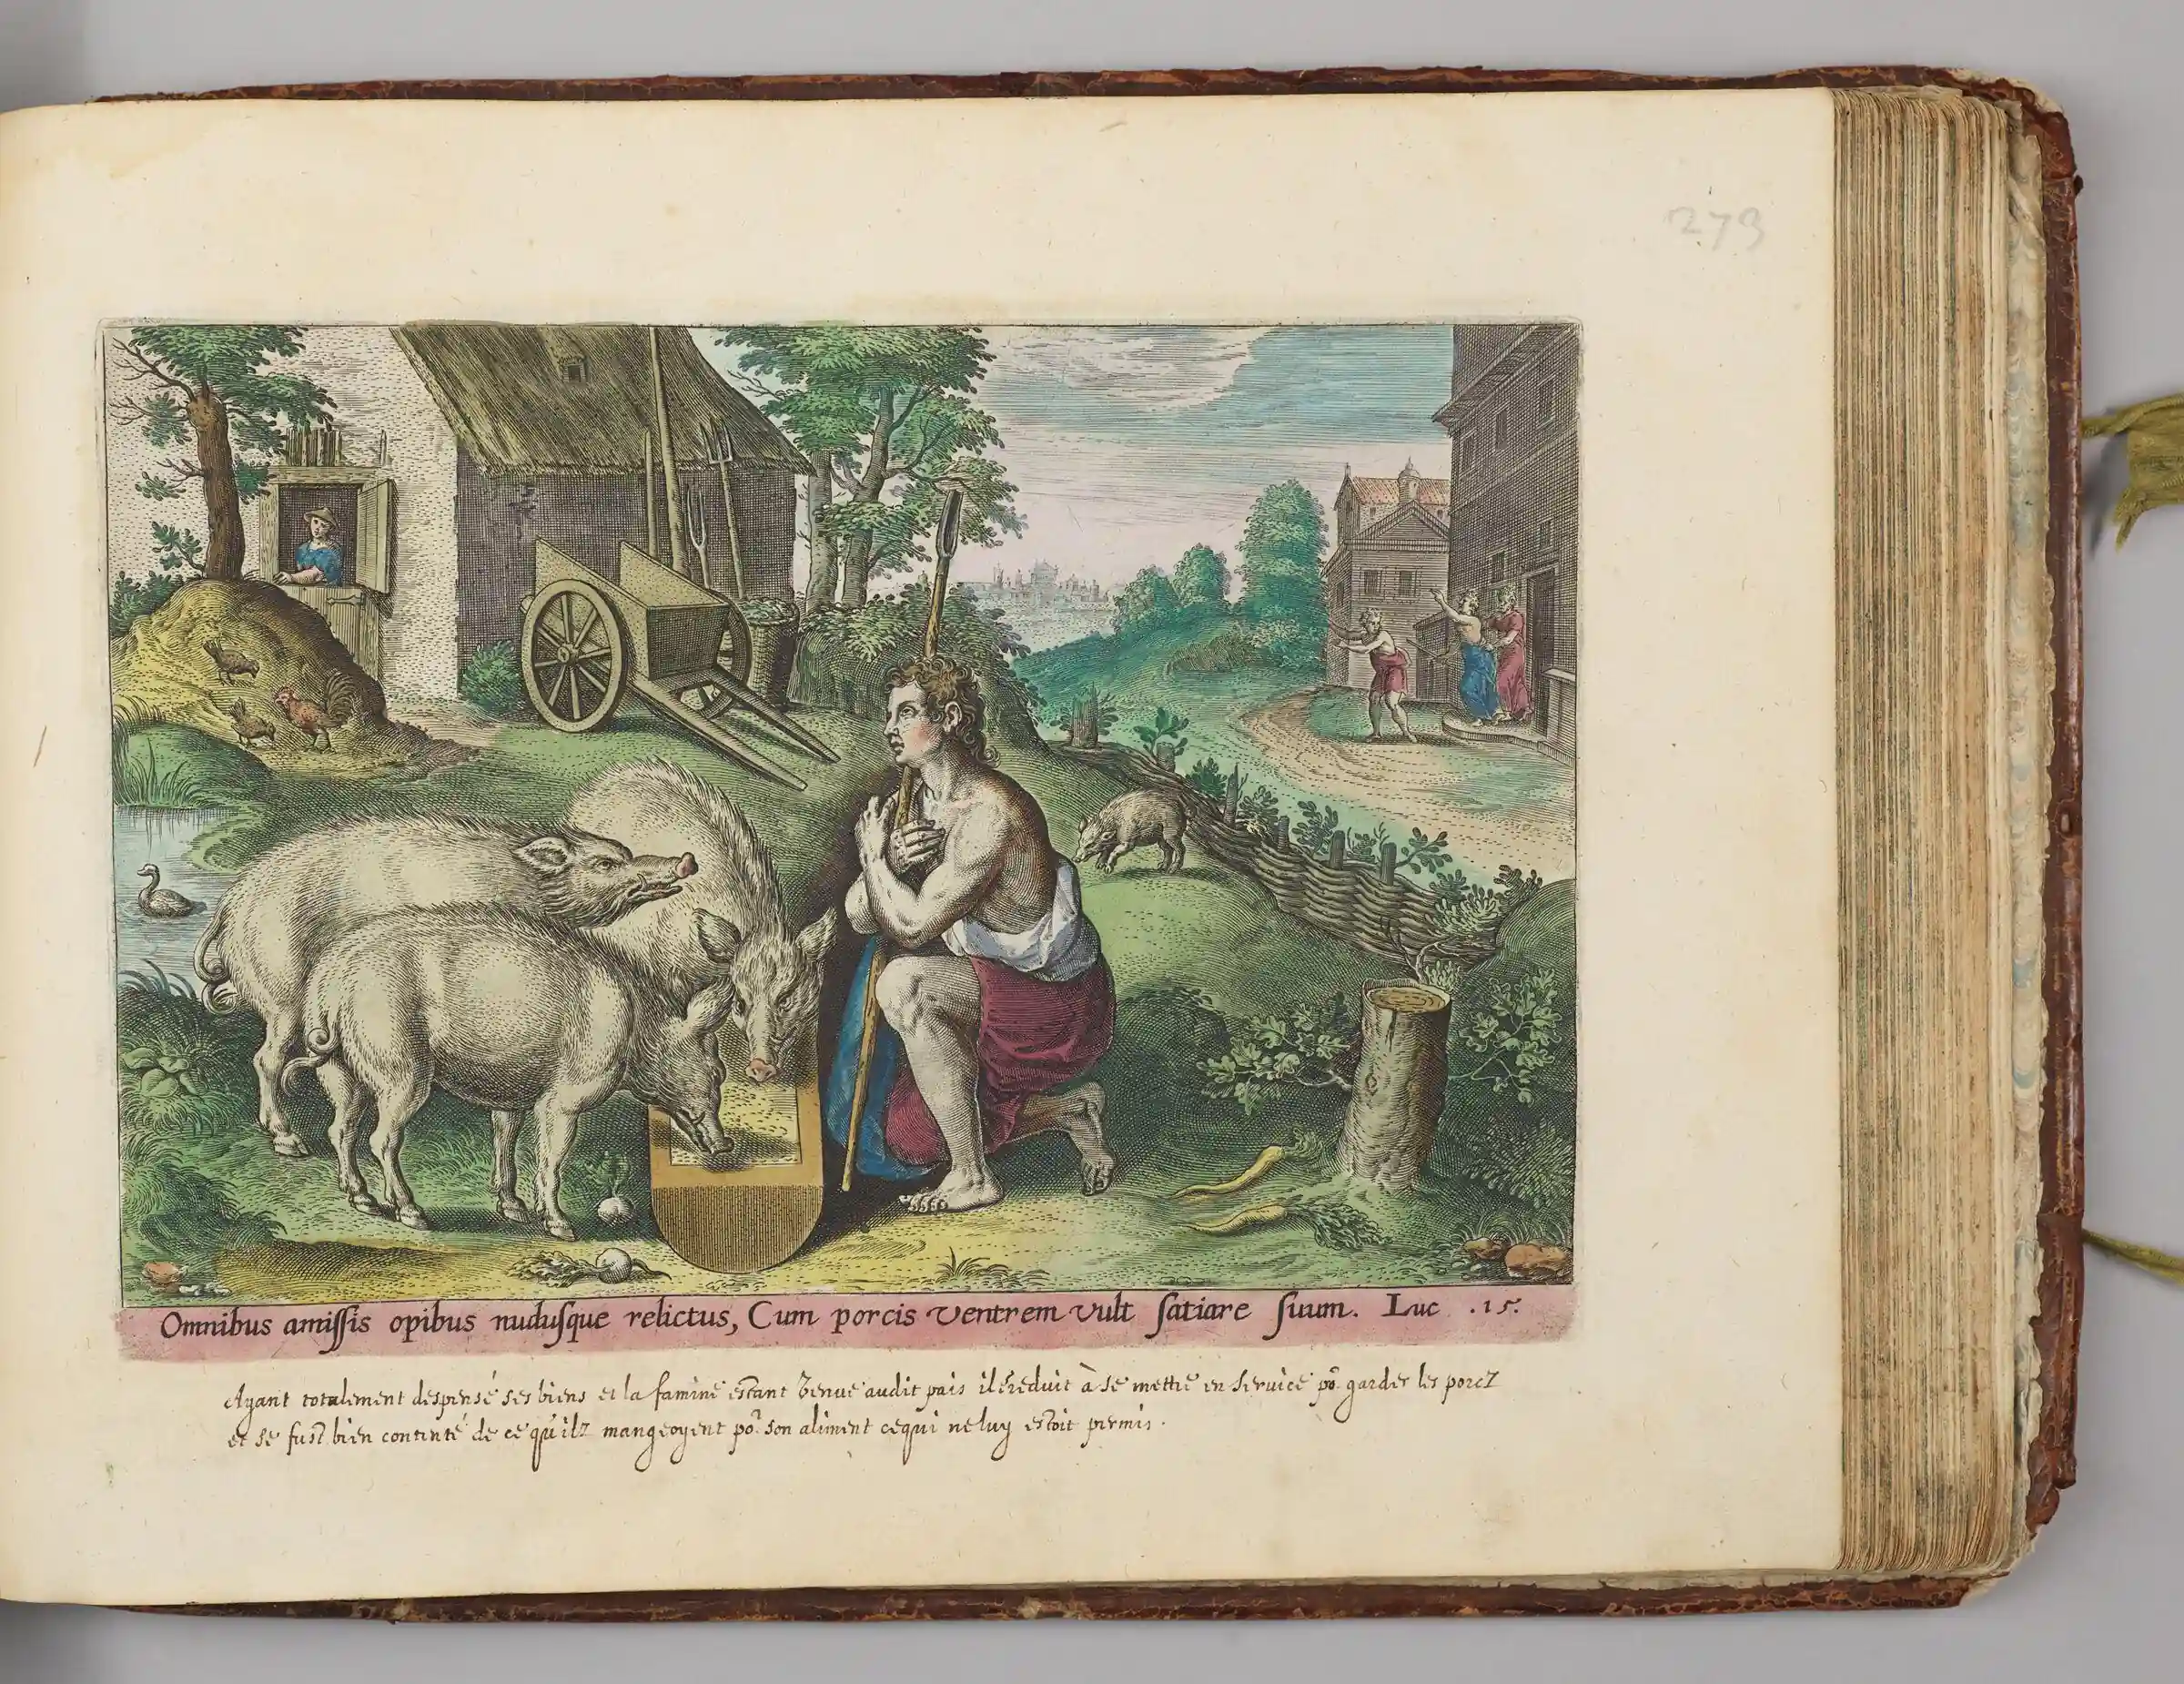 273
Omnibus amiſſis opibus nuduſque relictus, Cum porcis ventrem vult ſatiare ſuum. Luc .15.
Ayant totalement despensé ses biens et la famine estant venue audit pais il se reduit à se mettre en service po.r garder les porcz
et se fust bien contenté de ce qu'ilz mangeoyent po.r son aliment ce qui ne luy estoit permis.